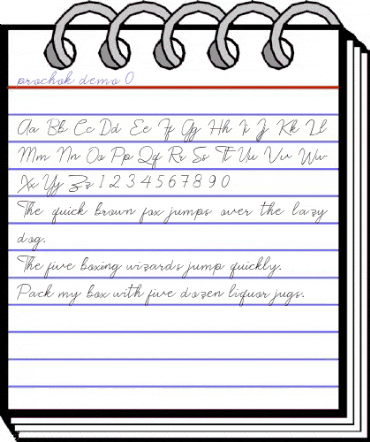 prochok demo 0
Aa Bb Cc Dd Ee Ff Gg Hh Ii Jj Kk Ll
Mm Nn Oo Pp Qq Rr Ss Tt Uu Vv Ww
Xx Yy Zz 1 2 3 4 5 6 7 8 9 0
The quick brown fox jumps over the lazy
dog.
The five boxing wizards jump quickly.
Pack my box with five dozen liquor jugs.